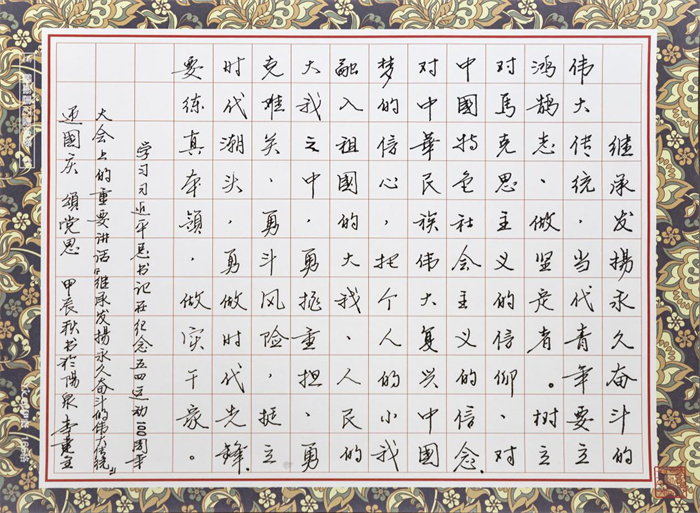 继承发揚永久奋斗的
伟大传统，当代青年要立
鸿鹄志、做坚定者。树立
对馬克思主义的信仰、对
中國特色社会主义的信念、
对中華民族伟大复兴中國
梦的信心，把个人的小我
融入祖國的大我、人民的
大我之中，勇挑重担、勇
克难关、勇斗风险，挺立
时代潮头，勇做时代先鋒、
要练真本领，做实干家。
学习习近平总书记在纪念五四运动100周年
大会上的重要讲话《继承发揚永久奋斗的伟大传统》
迎國庆 頌党恩 甲辰秋书於陽泉 李建立